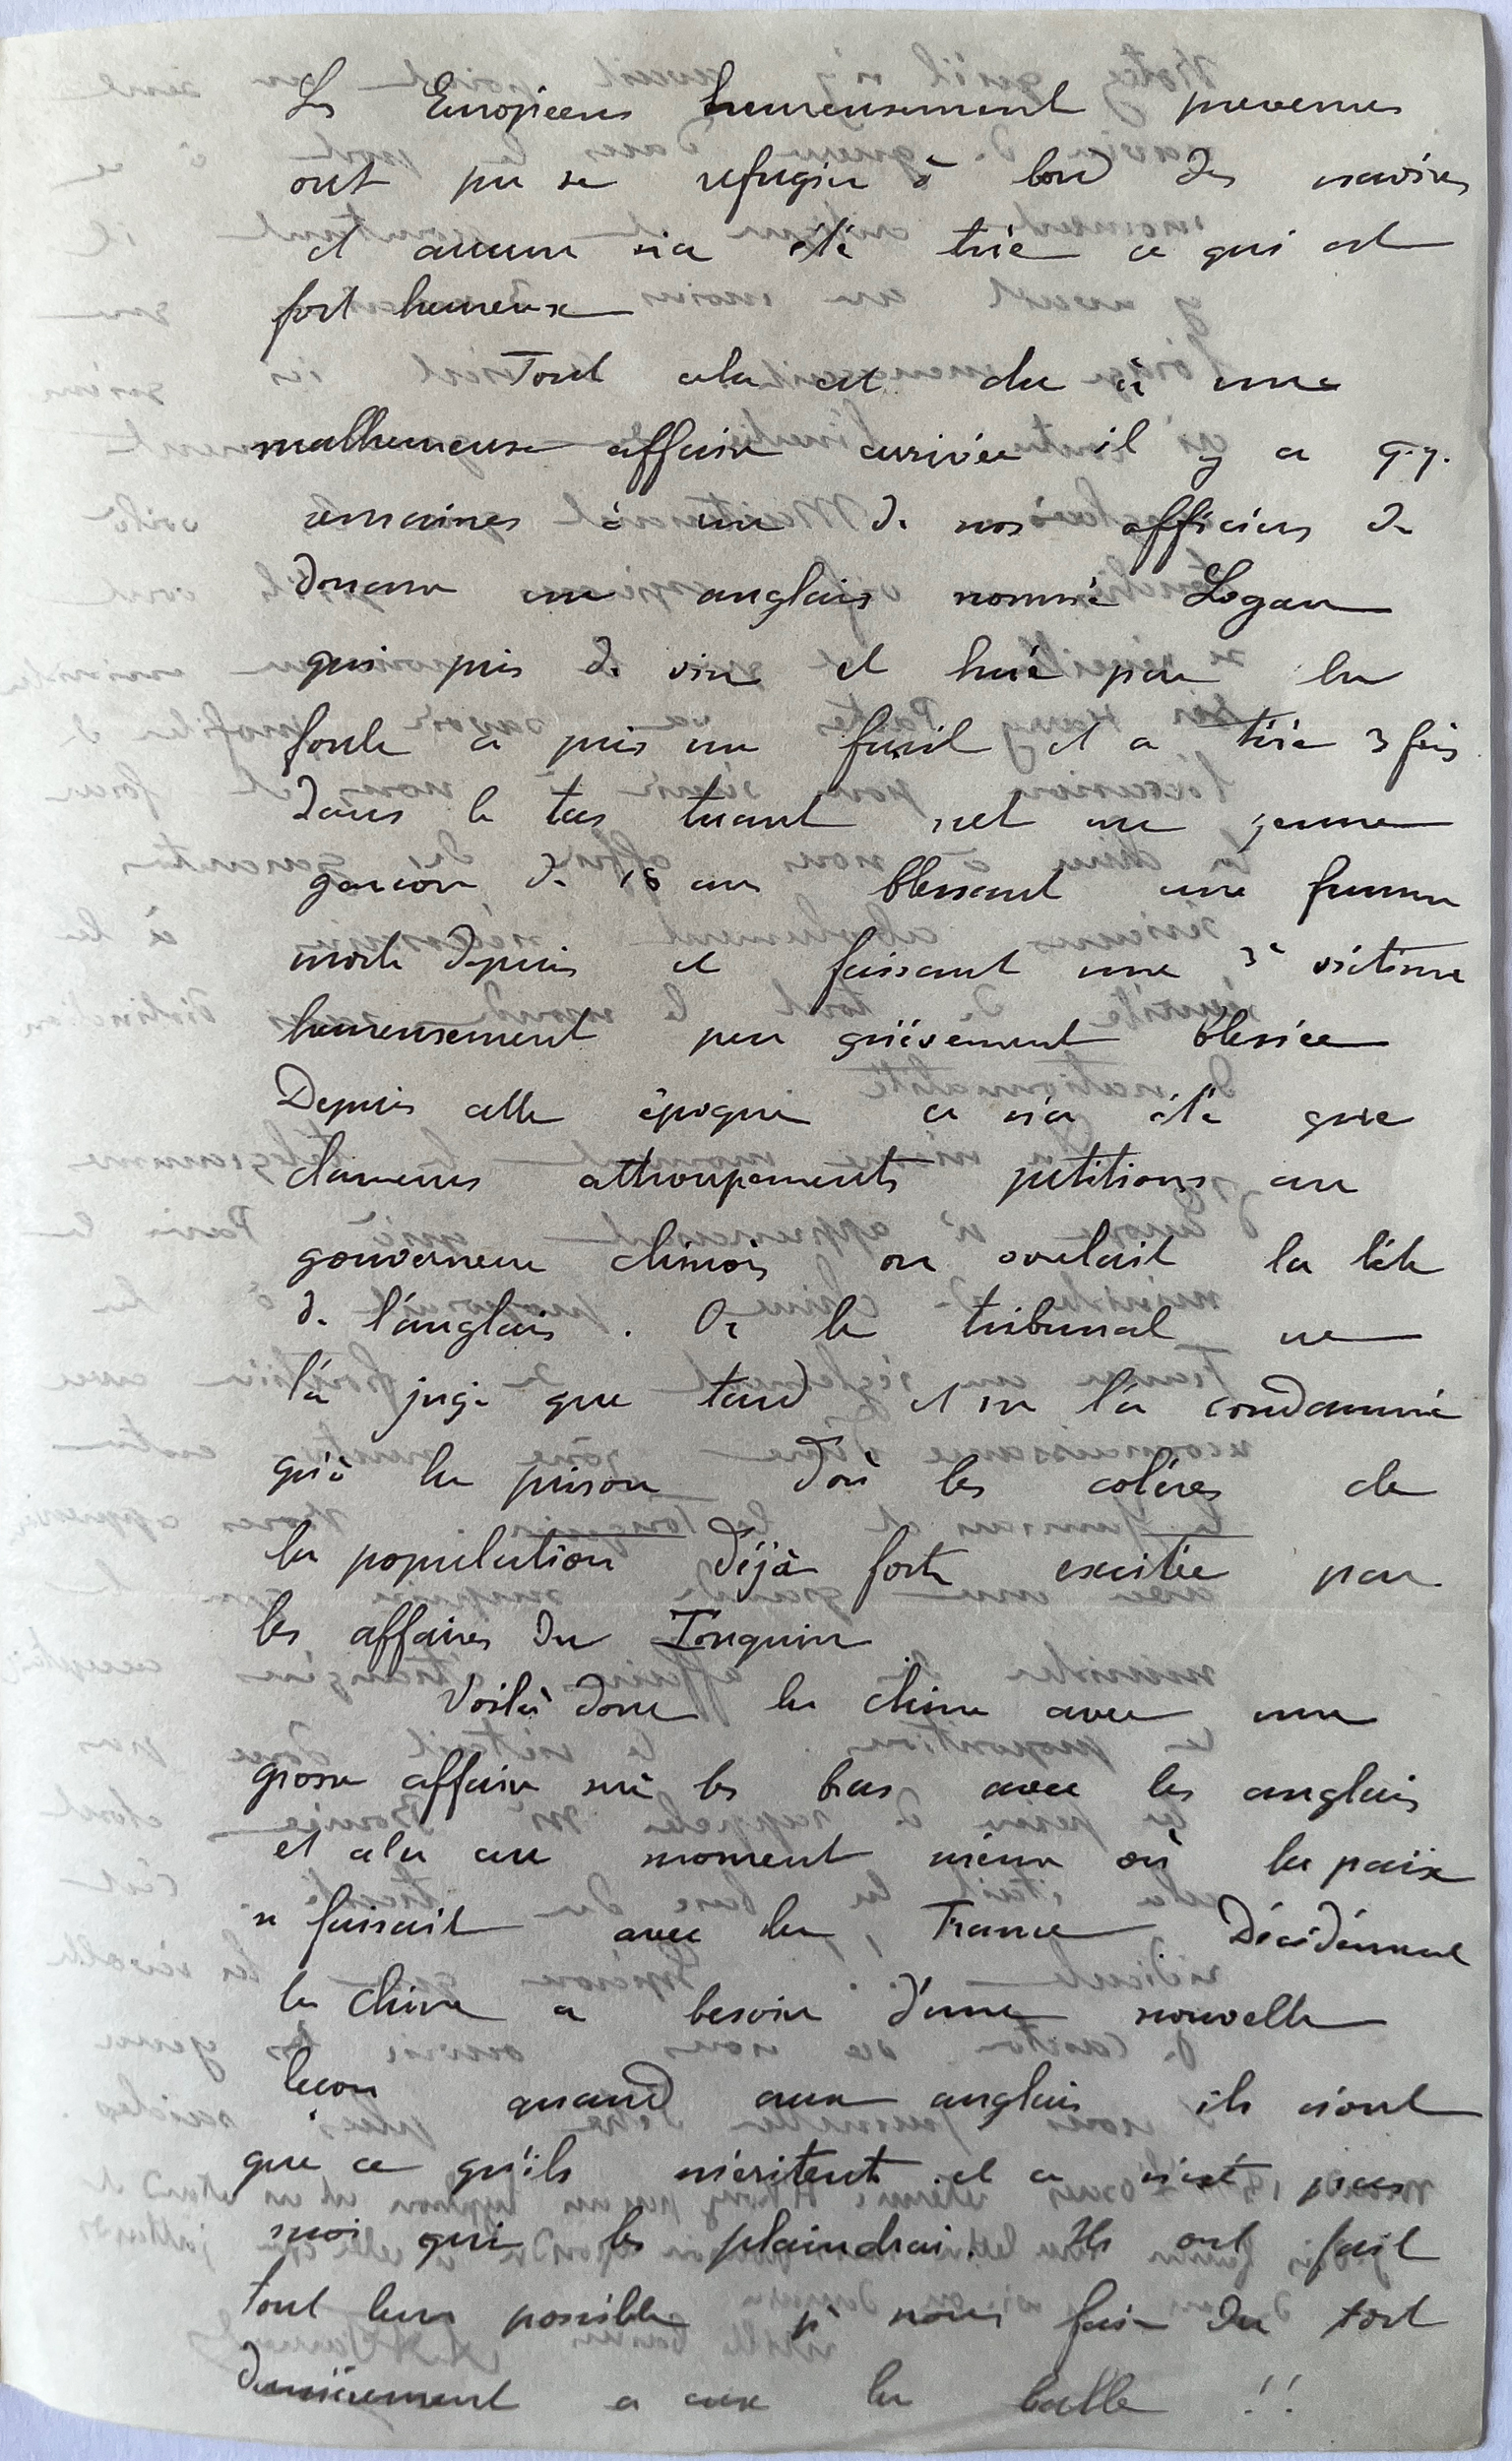 Les Européens heureusement prévenus
ont pu se refugier à bord des navires
et aucun n'a été tué ce qui est
fort heureux
Tout cela est du à une
malheureuse affaire arrivée il y a q.q.
semaines à un de nos officiers de
douane un anglais nommé Logan
qui pris de vin et hué par la
foule a pris un fusil et a tiré 3 fois
dans le tas tuant net un jeune
garçon de 18 ans blessant une femme
morte depuis et faisant une 3e victime
heureusement peu grièvement blessée
Depuis cette époque ce n'a été que
clameurs attroupements petitions au
gouverneur chinois on voulait la tête
de l'anglais. Or le tribunal ne
l'a jugé que tard et ne l'a condamné
qu'à la prison d'où les colères de
la population déjà forte excitée par
les affaires du Tonquin
Voilà donc la chine avec une
grosse affaire sur les bras avec les anglais
et cela au moment même où la paix
se faisait avec la France, Décidément
la Chine a besoin d'une nouvelle
leçon quand aux anglais ils n'ont
que ce qu'ils méritent et ce n'est pas
moi qui les plaindrai. Ils ont fait
tout leur possible pr nous faire du tort
dernièrement a eux la balle !!